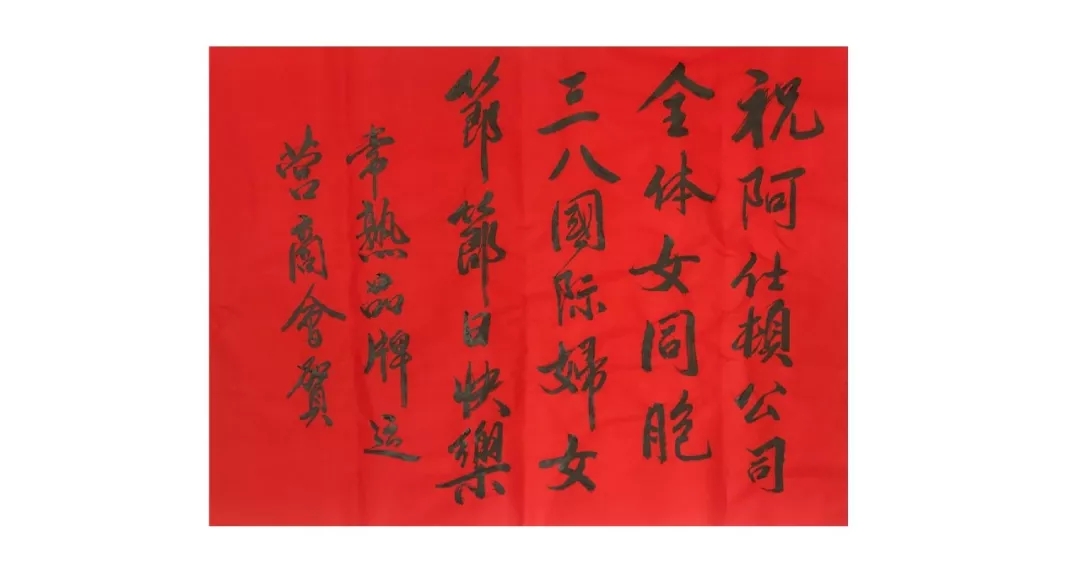 祝阿仕頓公司
全体女同胞
三八國际婦女
節節日快樂
常熟品牌运
营商會賀